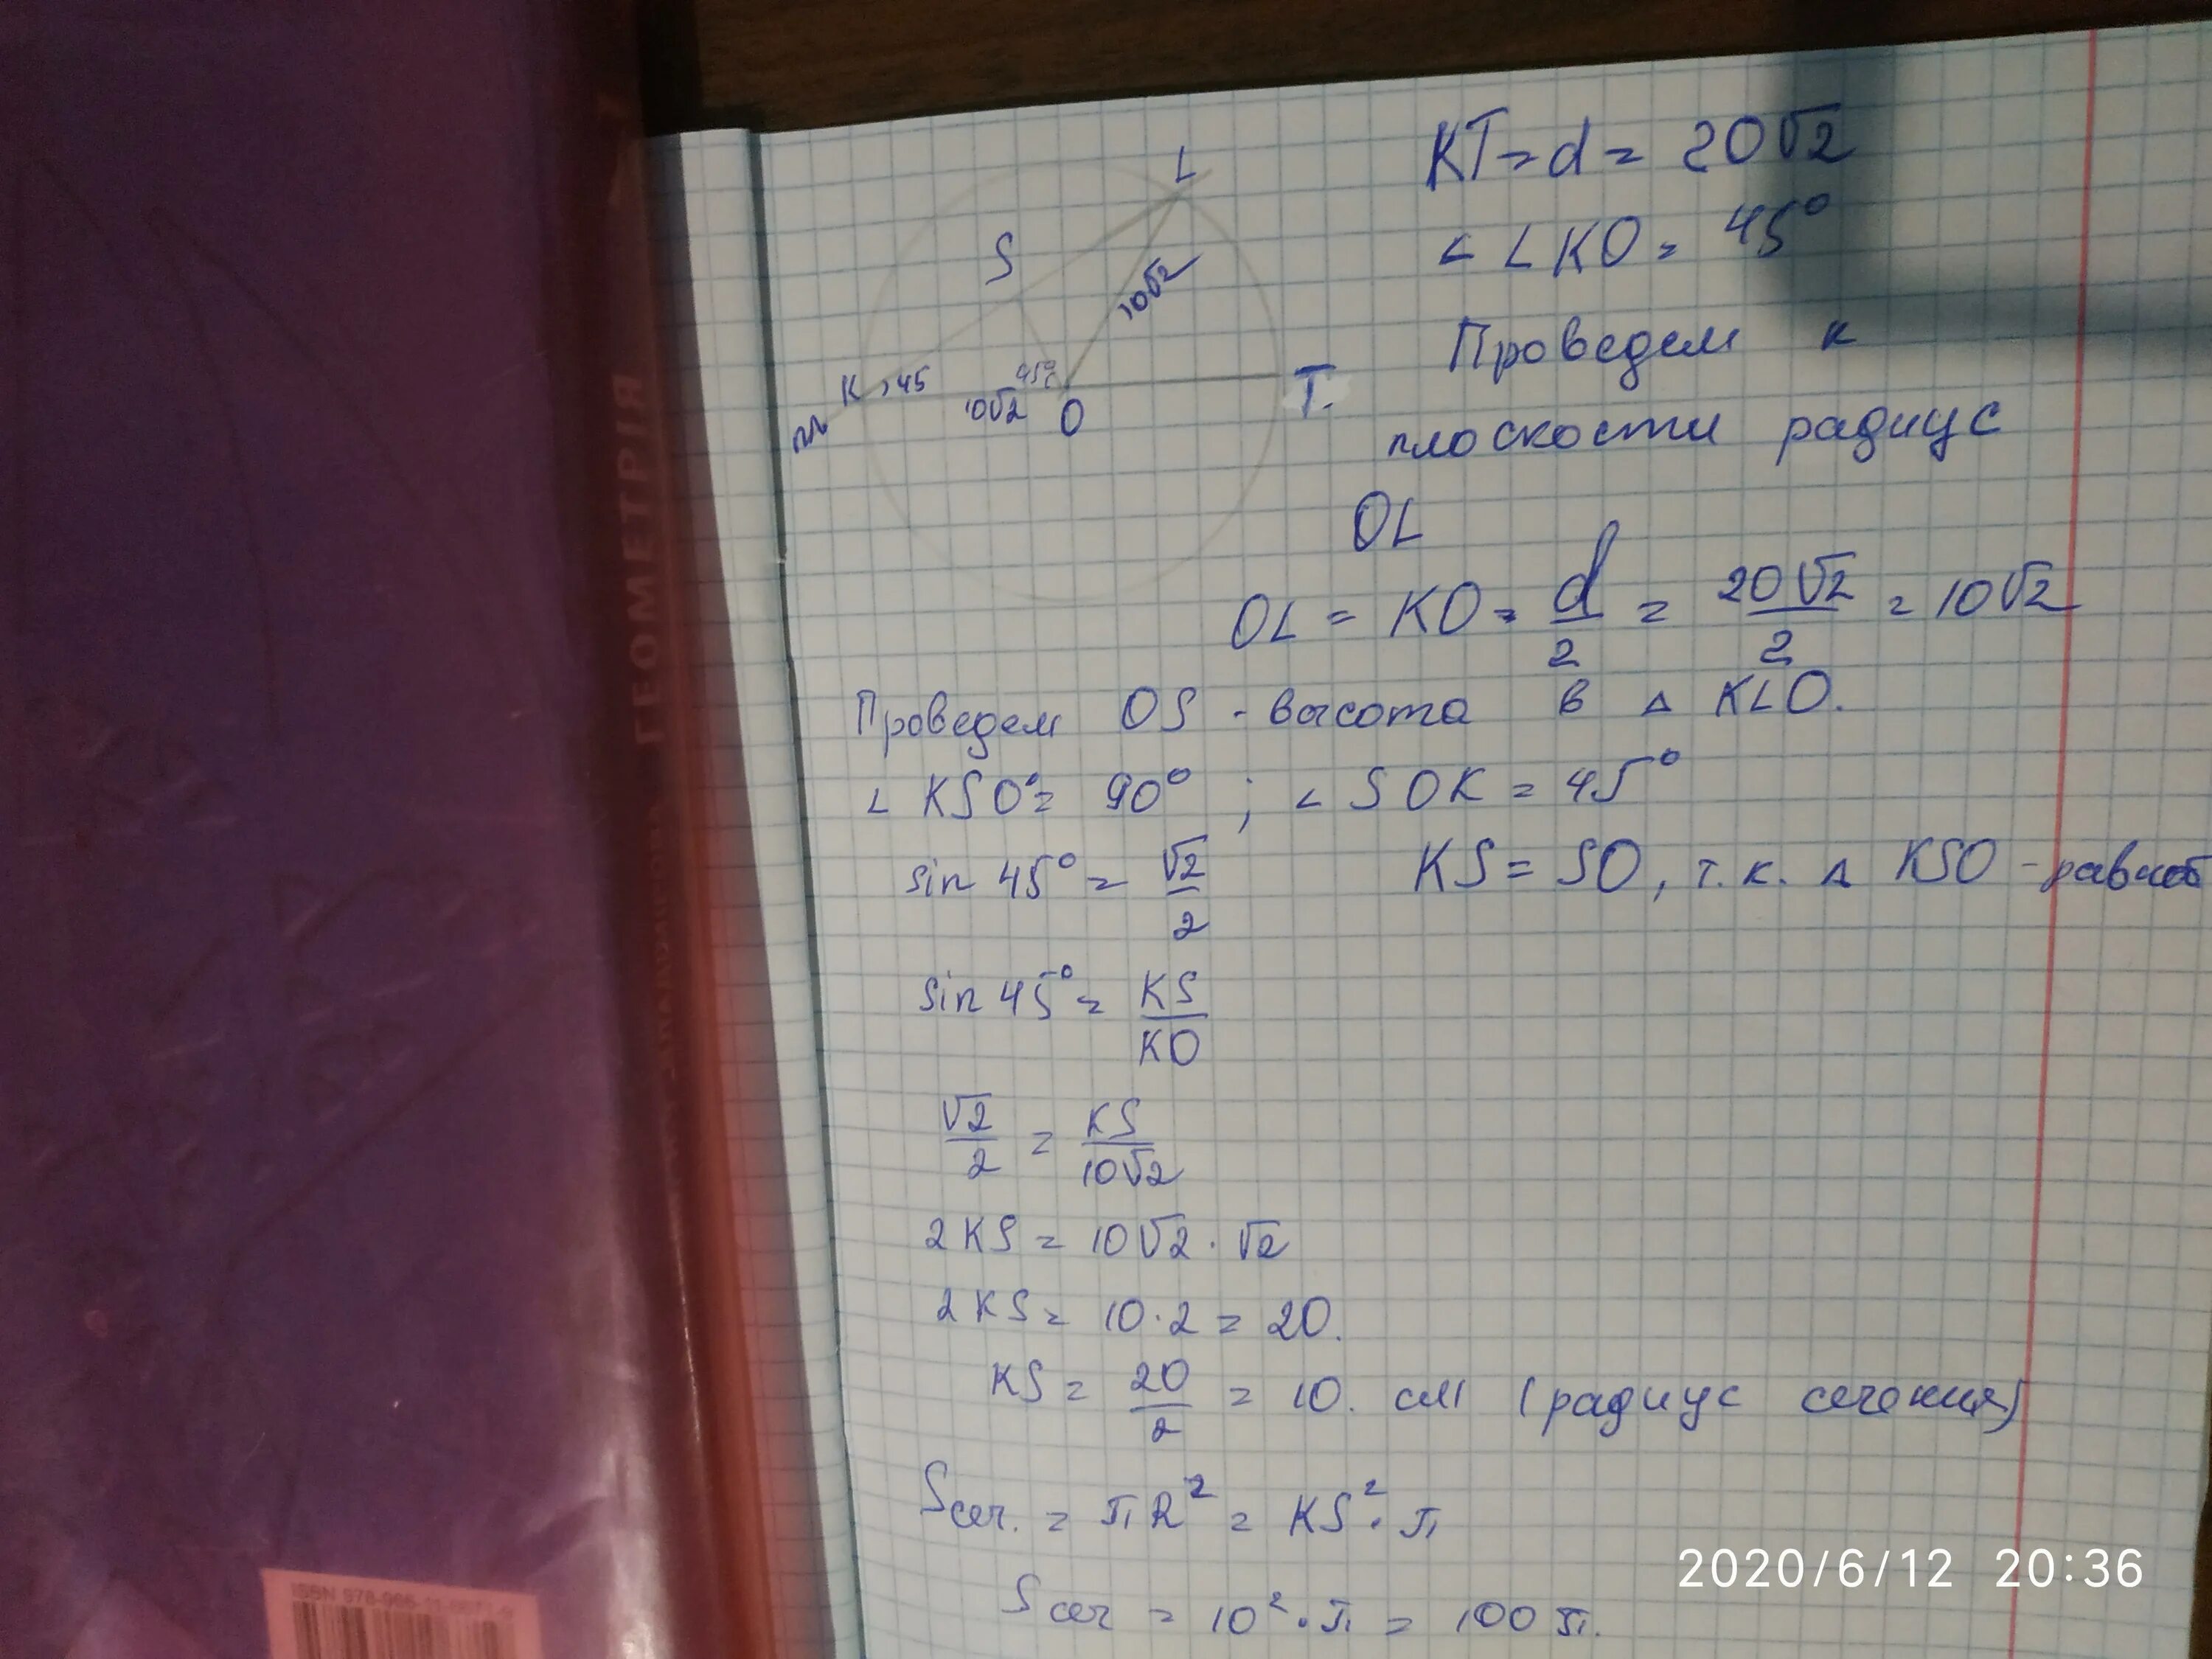 L
S
10√2
K 45
45°
10√2
O
T.
m
KT = d = 20√2
∠ LKO = 45°
Проведем к
плоскости радиус
OL
OL = KO = d/2 = 20√2/2 = 10√2
Проведем OS - высота в Δ KLO.
∠ KSO = 90° ; ∠ SOK = 45°
sin 45° = √2/2 KS = SO, т.к. Δ KSO - равноб
sin 45° = KS/KO
√2/2 = KS/10√2
2KS = 10√2 · √2
2KS = 10·2 = 20.
KS = 20/2 = 10. см (радиус сечения)
Sсеч. = πR² = KS² · π
Sсеч = 10² · π = 100π.
ГЕОМЕТРІЯ
2020/6/12 20:36